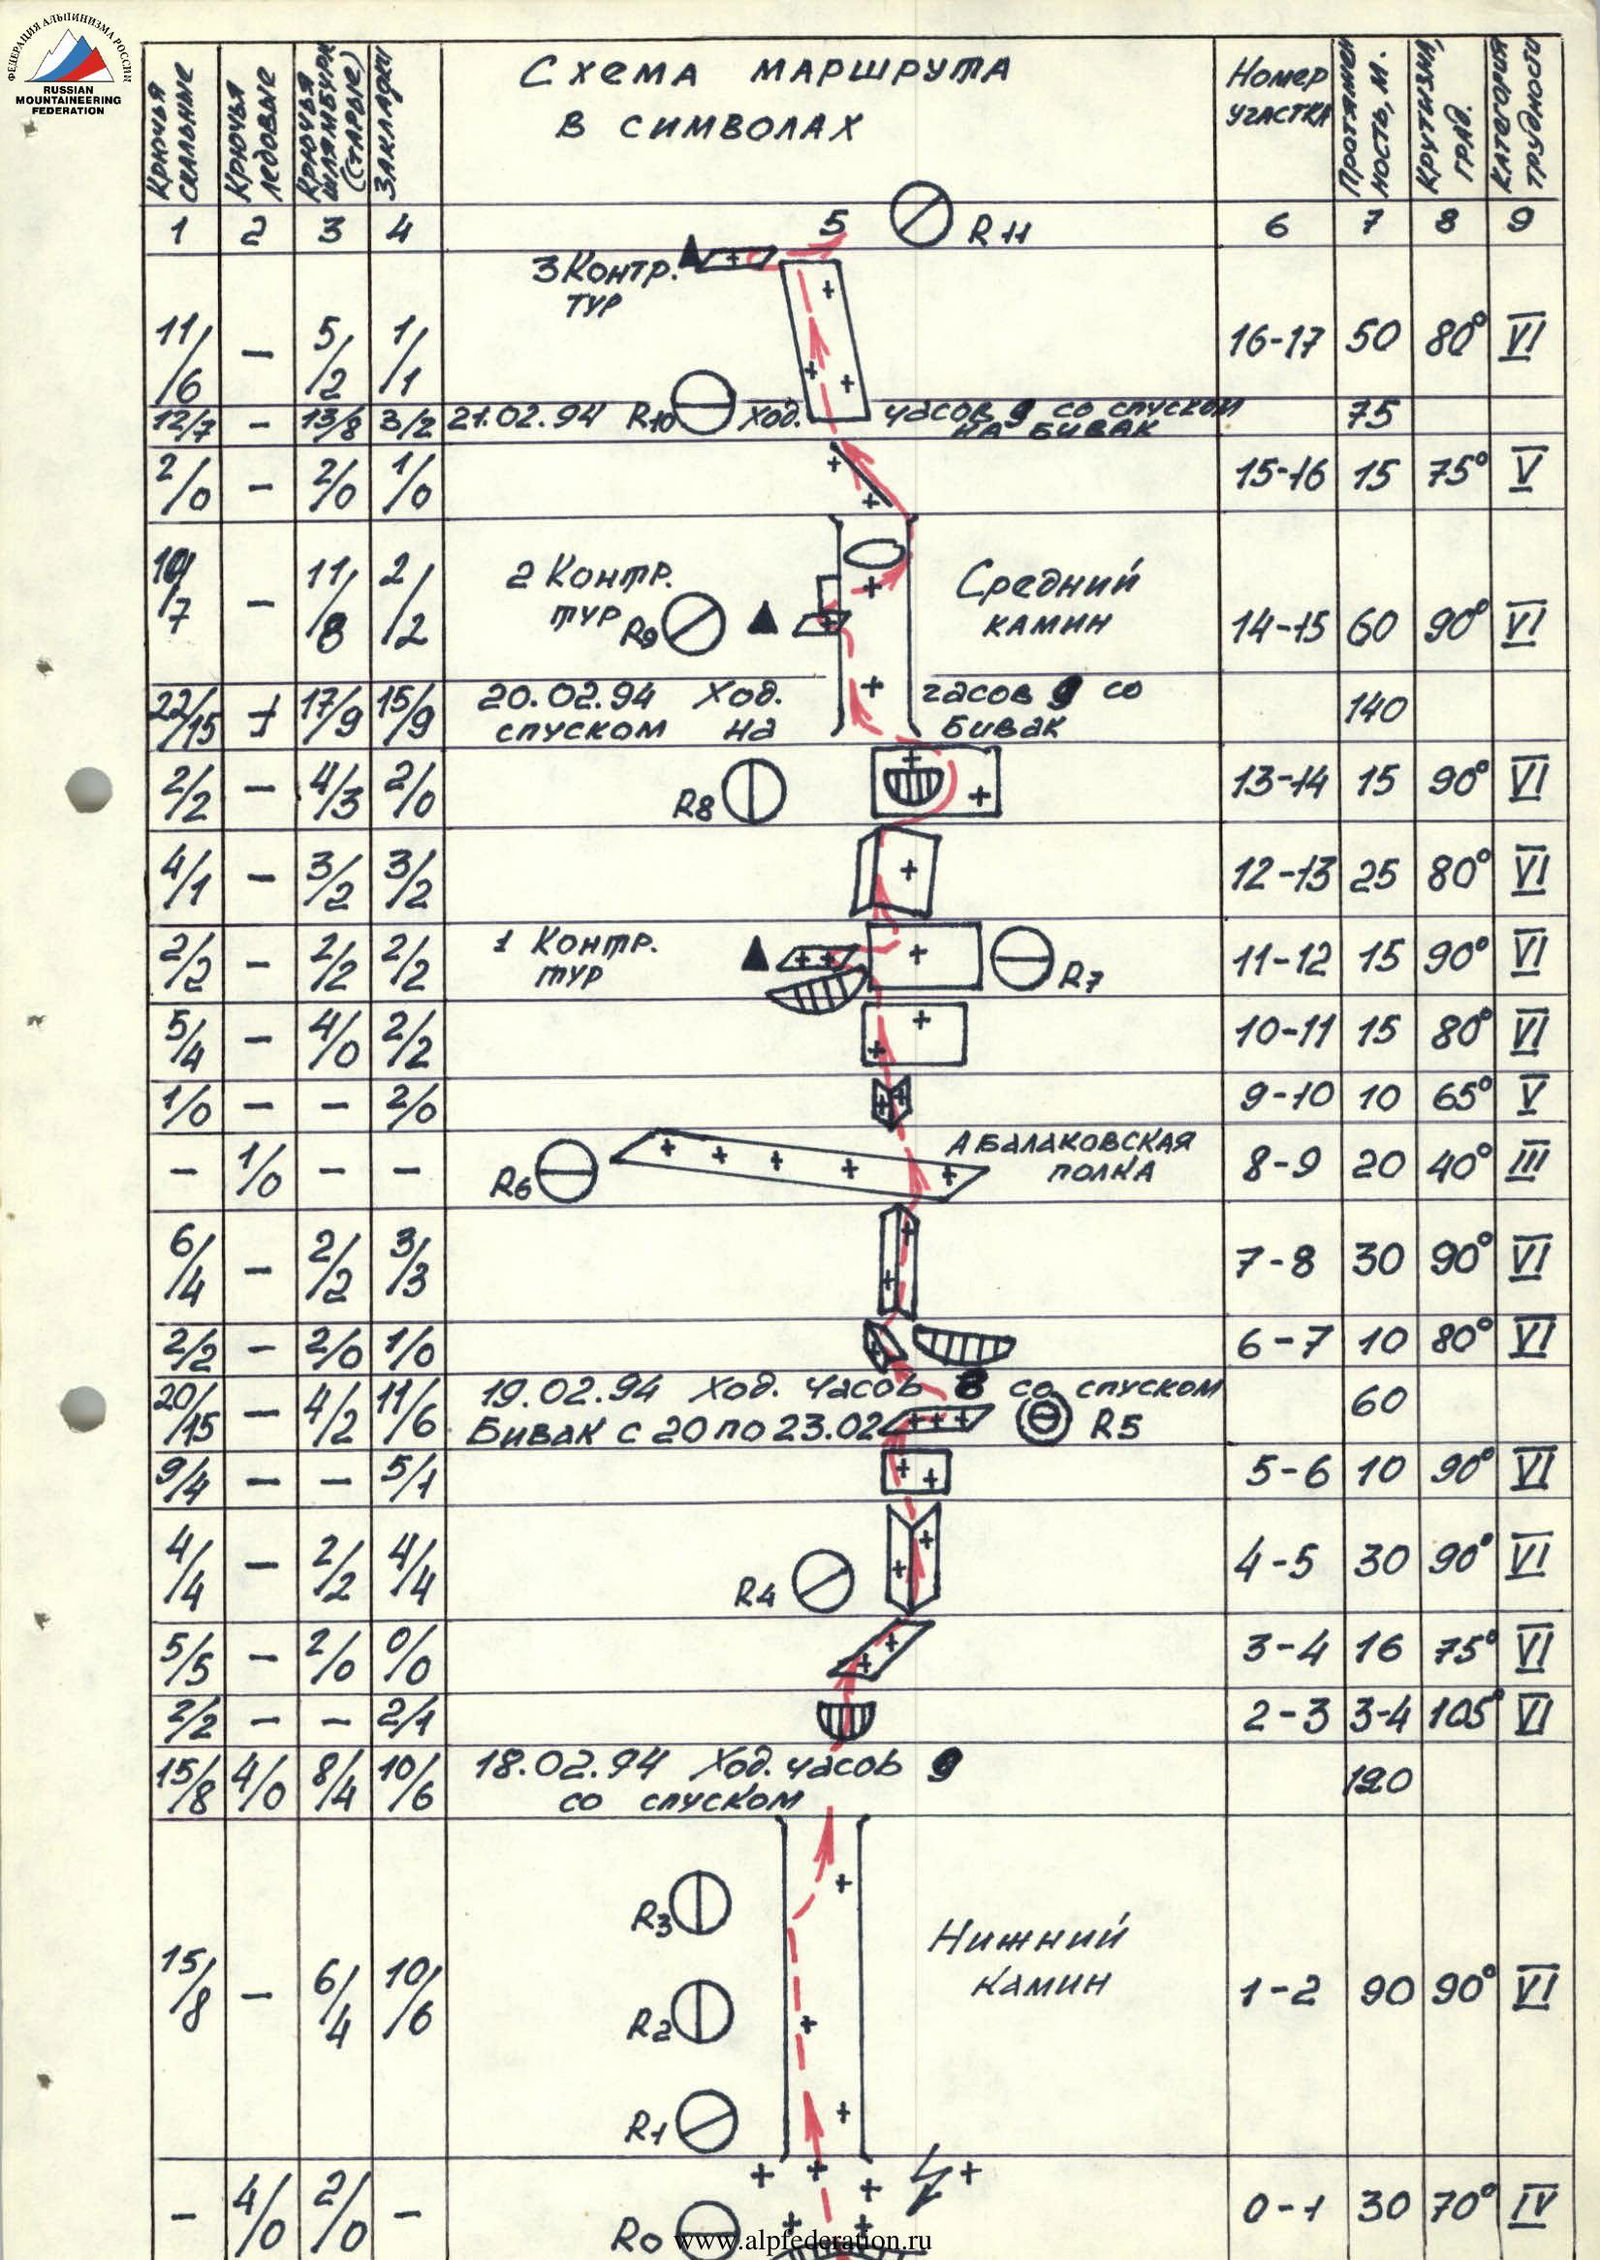 ФЕДЕРАЦИЯ АЛЬПИНИЗМА РОССИИ
RUSSIAN
MOUNTAINEERING
FEDERATION
Крючья скальные
Крючья ледовые
Крючья шлямбурн (старые)
Закладки
Схема маршрута
в символах
Номер участка
Протяжен ность, м.
Крутизна, град.
Категория трудности
1 2 3 4 5 R11 6 7 8 9
3 Контр.
тур
11/6 – 5/2 1/1 16-17 50 80° VI
12/7 – 13/8 3/2 21.02.94 R10 Ход. часов 9 со спуском 75
на бивак
2/0 – 2/0 1/0 15-16 15 75° V
2 Контр. Средний
тур R9 камин
10/7 – 11/8 2/2 14-15 60 90° VI
22/15 17/9 15/9 20.02.94 Ход. часов 9 со 140
спуском на бивак
2/2 – 4/3 2/0 R8 13-14 15 90° VI
4/1 – 3/2 3/2 12-13 25 80° VI
1 Контр.
тур
2/2 – 2/2 2/2 R7 11-12 15 90° VI
5/4 – 4/0 2/2 10-11 15 80° VI
1/0 – – 2/0 9-10 10 65° V
Абалаковская
полка
– 1/0 – – R6 8-9 20 40° III
6/4 – 2/2 3/3 7-8 30 90° VI
2/2 – 2/0 1/0 6-7 10 80° VI
20/15 – 4/2 11/6 19.02.94 Ход. часов 8 со спуском 60
Бивак с 20 по 23.02 R5
9/4 – – 5/1 5-6 10 90° VI
4/4 – 2/2 4/4 R4 4-5 30 90° VI
5/5 – 2/0 0/0 3-4 16 75° VI
2/2 – – 2/1 2-3 3-4 105° VI
15/8 4/0 8/4 10/6 18.02.94 Ход. часов 9 120
со спуском
R3
Нижний
камин
15/8 – 6/4 10/6 1-2 90 90° VI
R2
R1
– 4/0 2/0 – R0 0-1 30 70° IV
www.alpfederation.ru